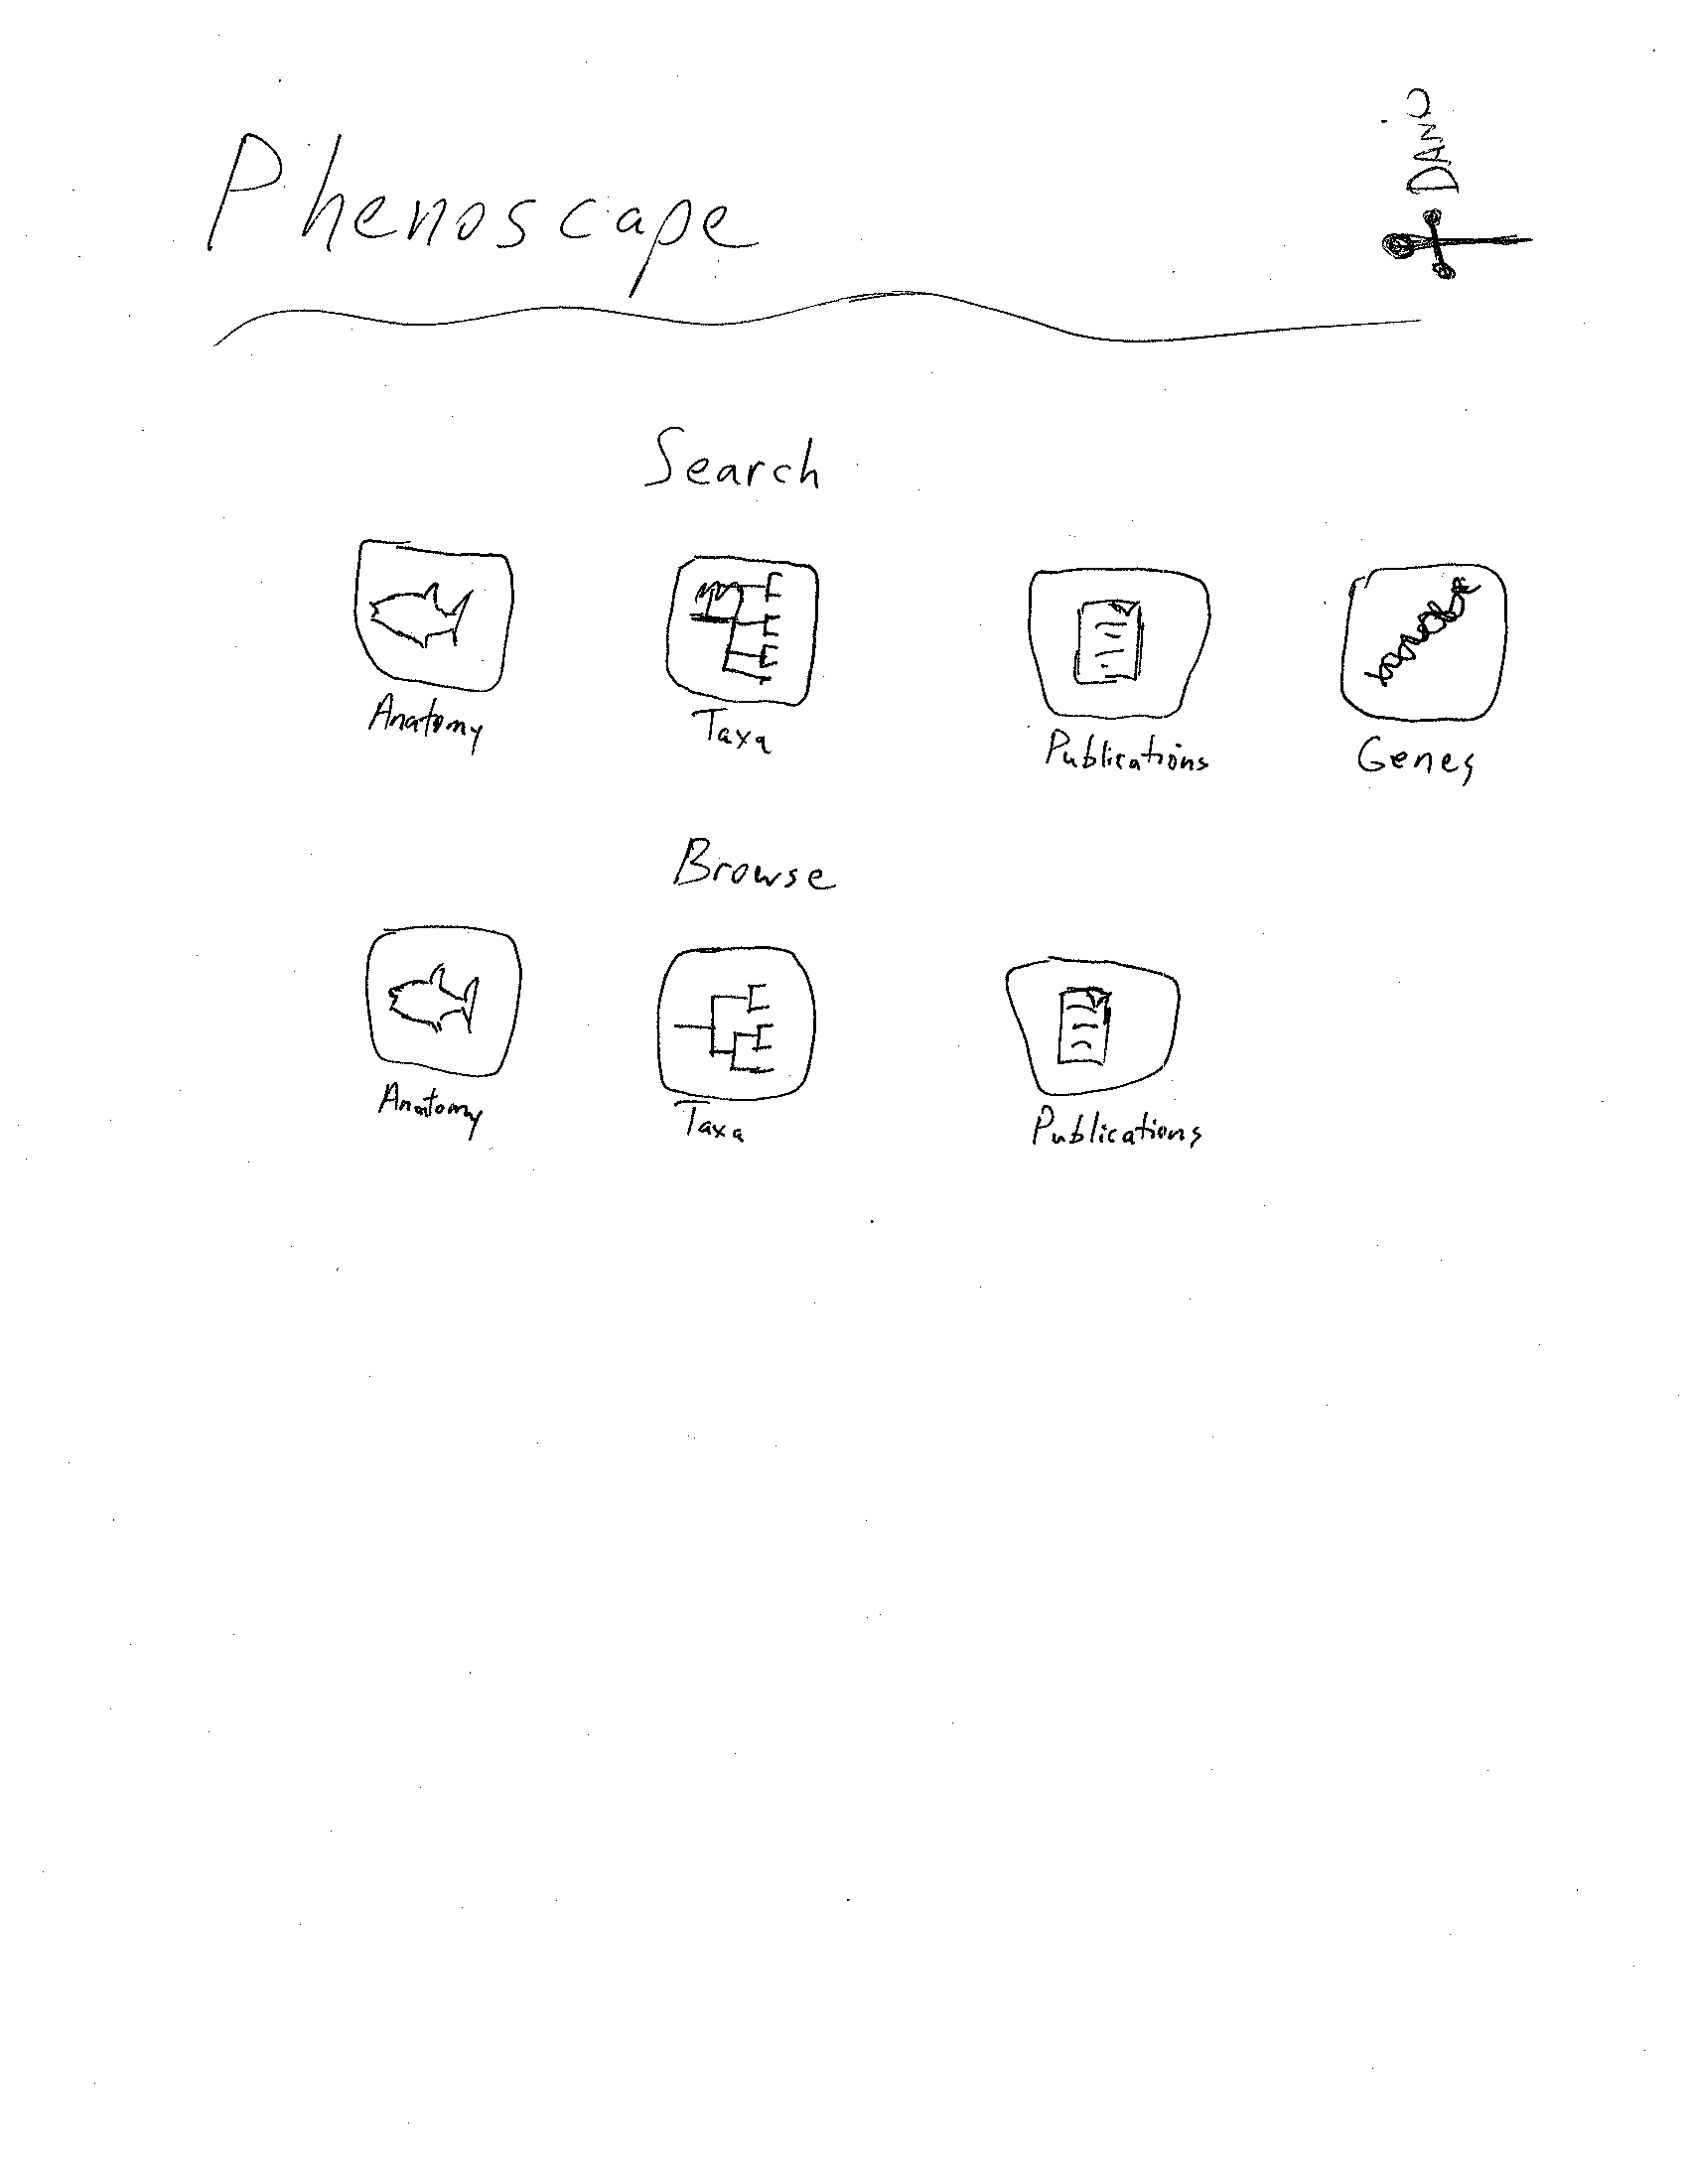 Phenoscape
DANIO
Search
Anatomy
Taxa
Publications
Genes
Browse
Anatomy
Taxa
Publications